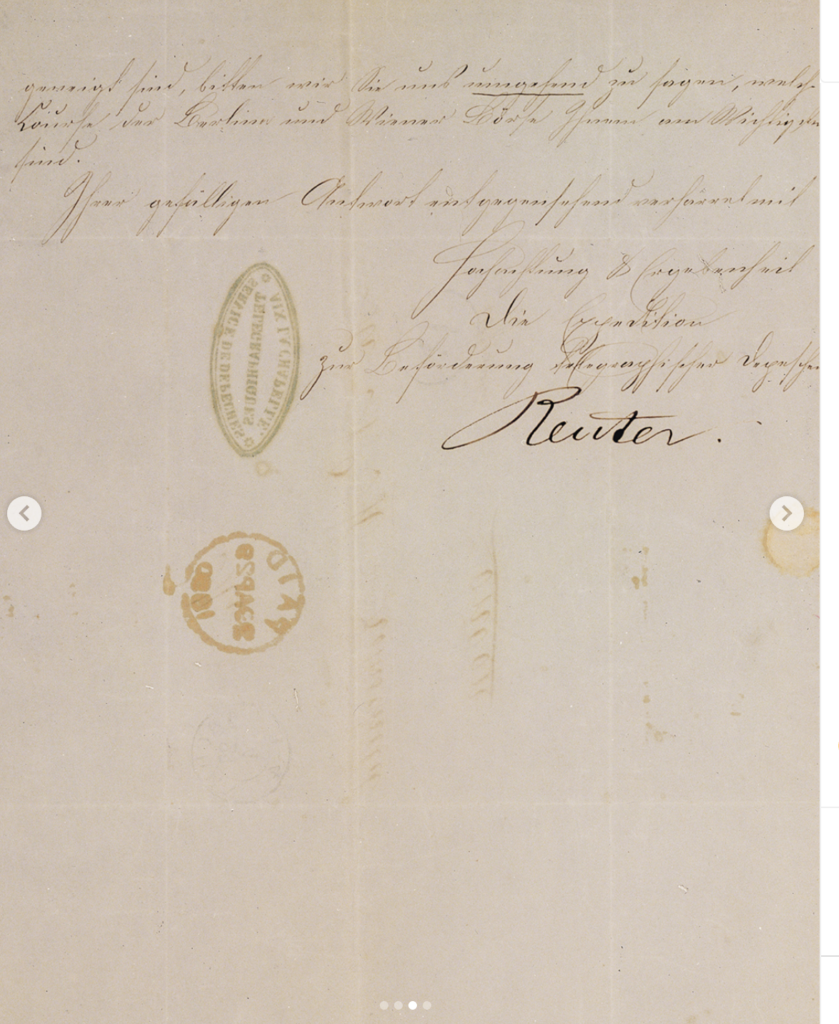 geneigt sind, bitten wir Sie uns umgehend zu sagen, welche
Course der Berliner und Wiener Börse Ihnen am Wichtigsten
sind.
Ihrer gefälligen Antwort entgegensehend verharret mit
Hochachtung & Ergebenheit
Die Expedition
zur Beförderung telegraphischer Depeschen
Reuter.
SERVICE DE DEPECHES
TELEGRAPHIQUES
AIX LA CHAPELLE.
PAID
1850